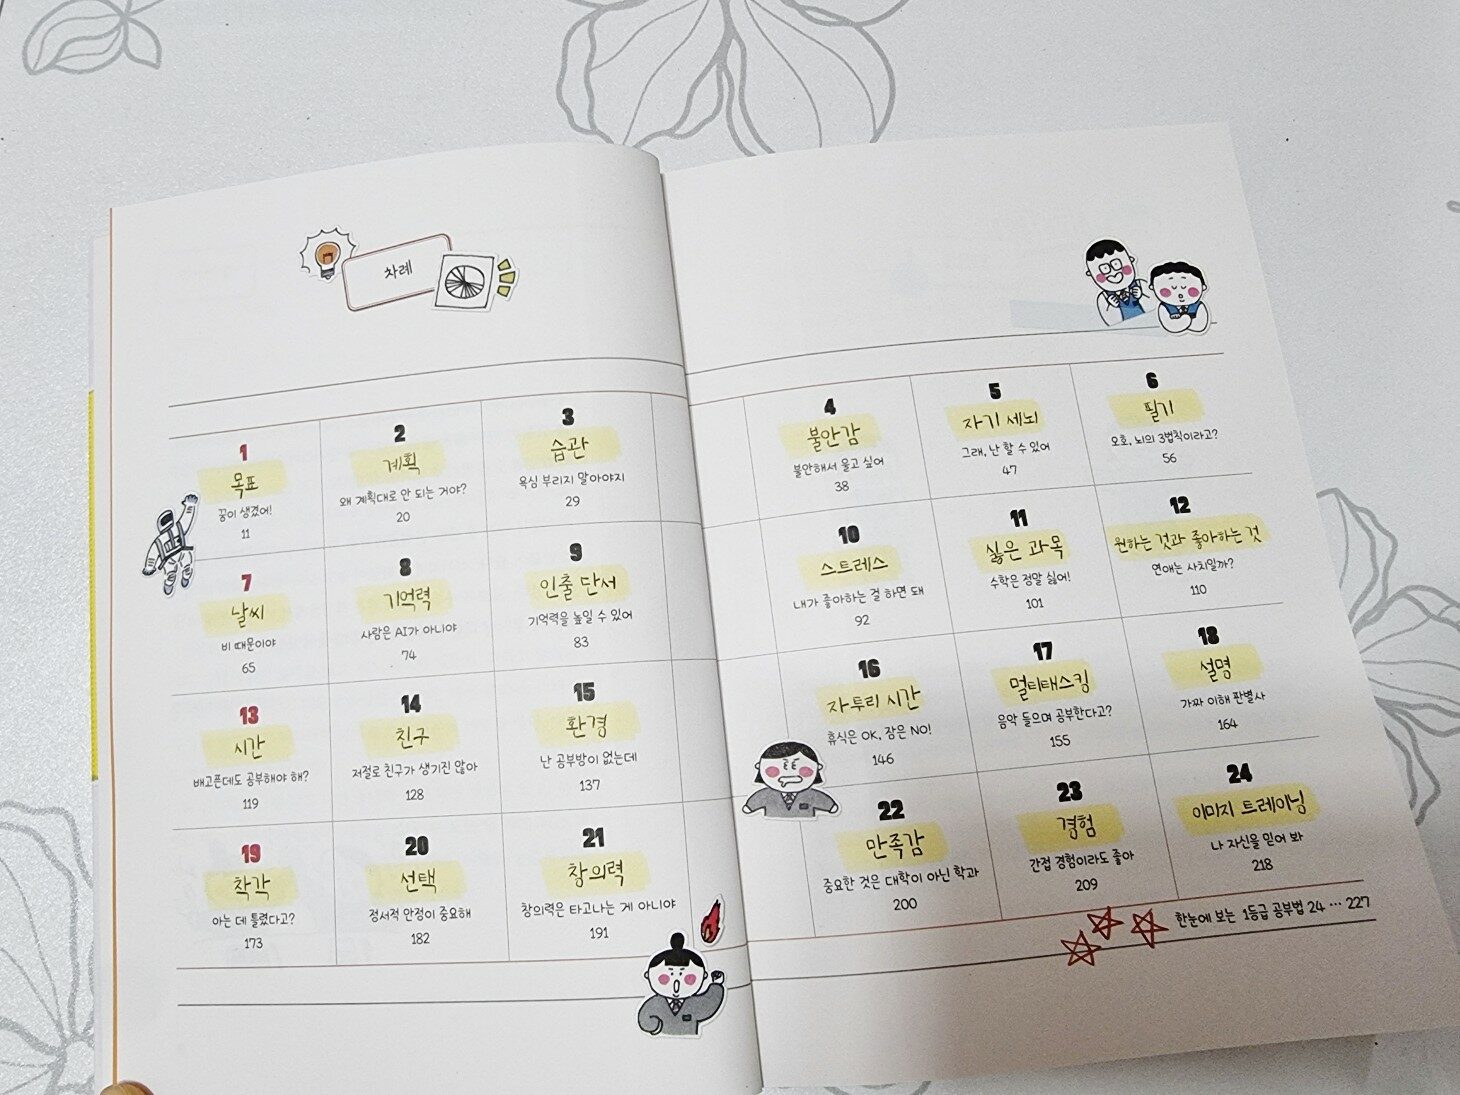 차례
1
목표
꿈이 생겼어!
11
2
계획
왜 계획대로 안 되는 거야?
20
3
습관
욕심 부리지 말아야지
29
4
불안감
불안해서 울고 싶어
38
5
자기 세뇌
그래, 난 할 수 있어
47
6
필기
오호, 뇌의 3법칙이라고?
56
7
날씨
비 때문이야
65
8
기억력
사람은 AI가 아니야
74
9
인출 단서
기억력을 높일 수 있어
83
10
스트레스
내가 좋아하는 걸 하면 돼
92
11
싫은 과목
수학은 정말 싫어!
101
12
원하는 것과 좋아하는 것
연애는 사치일까?
110
13
시간
배고픈데도 공부해야 해?
119
14
친구
저절로 친구가 생기진 않아
128
15
환경
난 공부방이 없는데
137
16
자투리 시간
휴식은 OK, 잠은 NO!
146
17
멀티태스킹
음악 들으며 공부한다고?
155
18
설명
가짜 이해 판별사
164
19
착각
아는 데 틀렸다고?
173
20
선택
정서적 안정이 중요해
182
21
창의력
창의력은 타고나는 게 아니야
191
22
만족감
중요한 것은 대학이 아닌 학과
200
23
경험
간접 경험이라도 좋아
209
24
이미지 트레이닝
나 자신을 믿어 봐
218
한눈에 보는 1등급 공부법 24 … 227